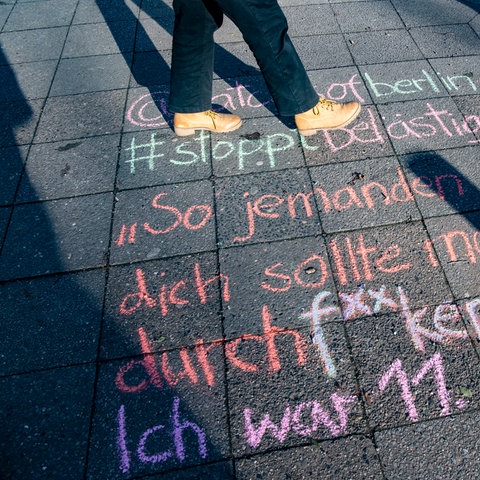 @ of berlin
#stoppt Belästig
„So jemanden
dich sollte
durch fxxken
Ich war 11.